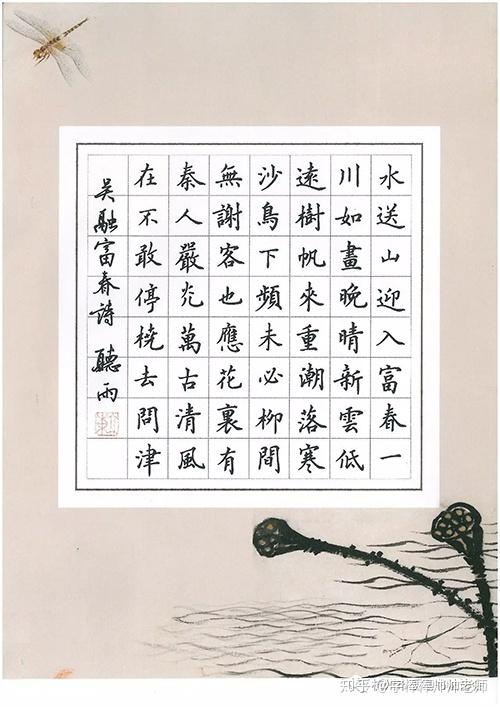 水送山迎入富春一
川如畫晚晴新雲低
遠樹帆來重潮落寒
沙鳥下頻未必柳間
無謝客也應花裏有
秦人嚴灮萬古清風
在不敢停橈去問津
吳融富春詩 聽雨
知乎 老师